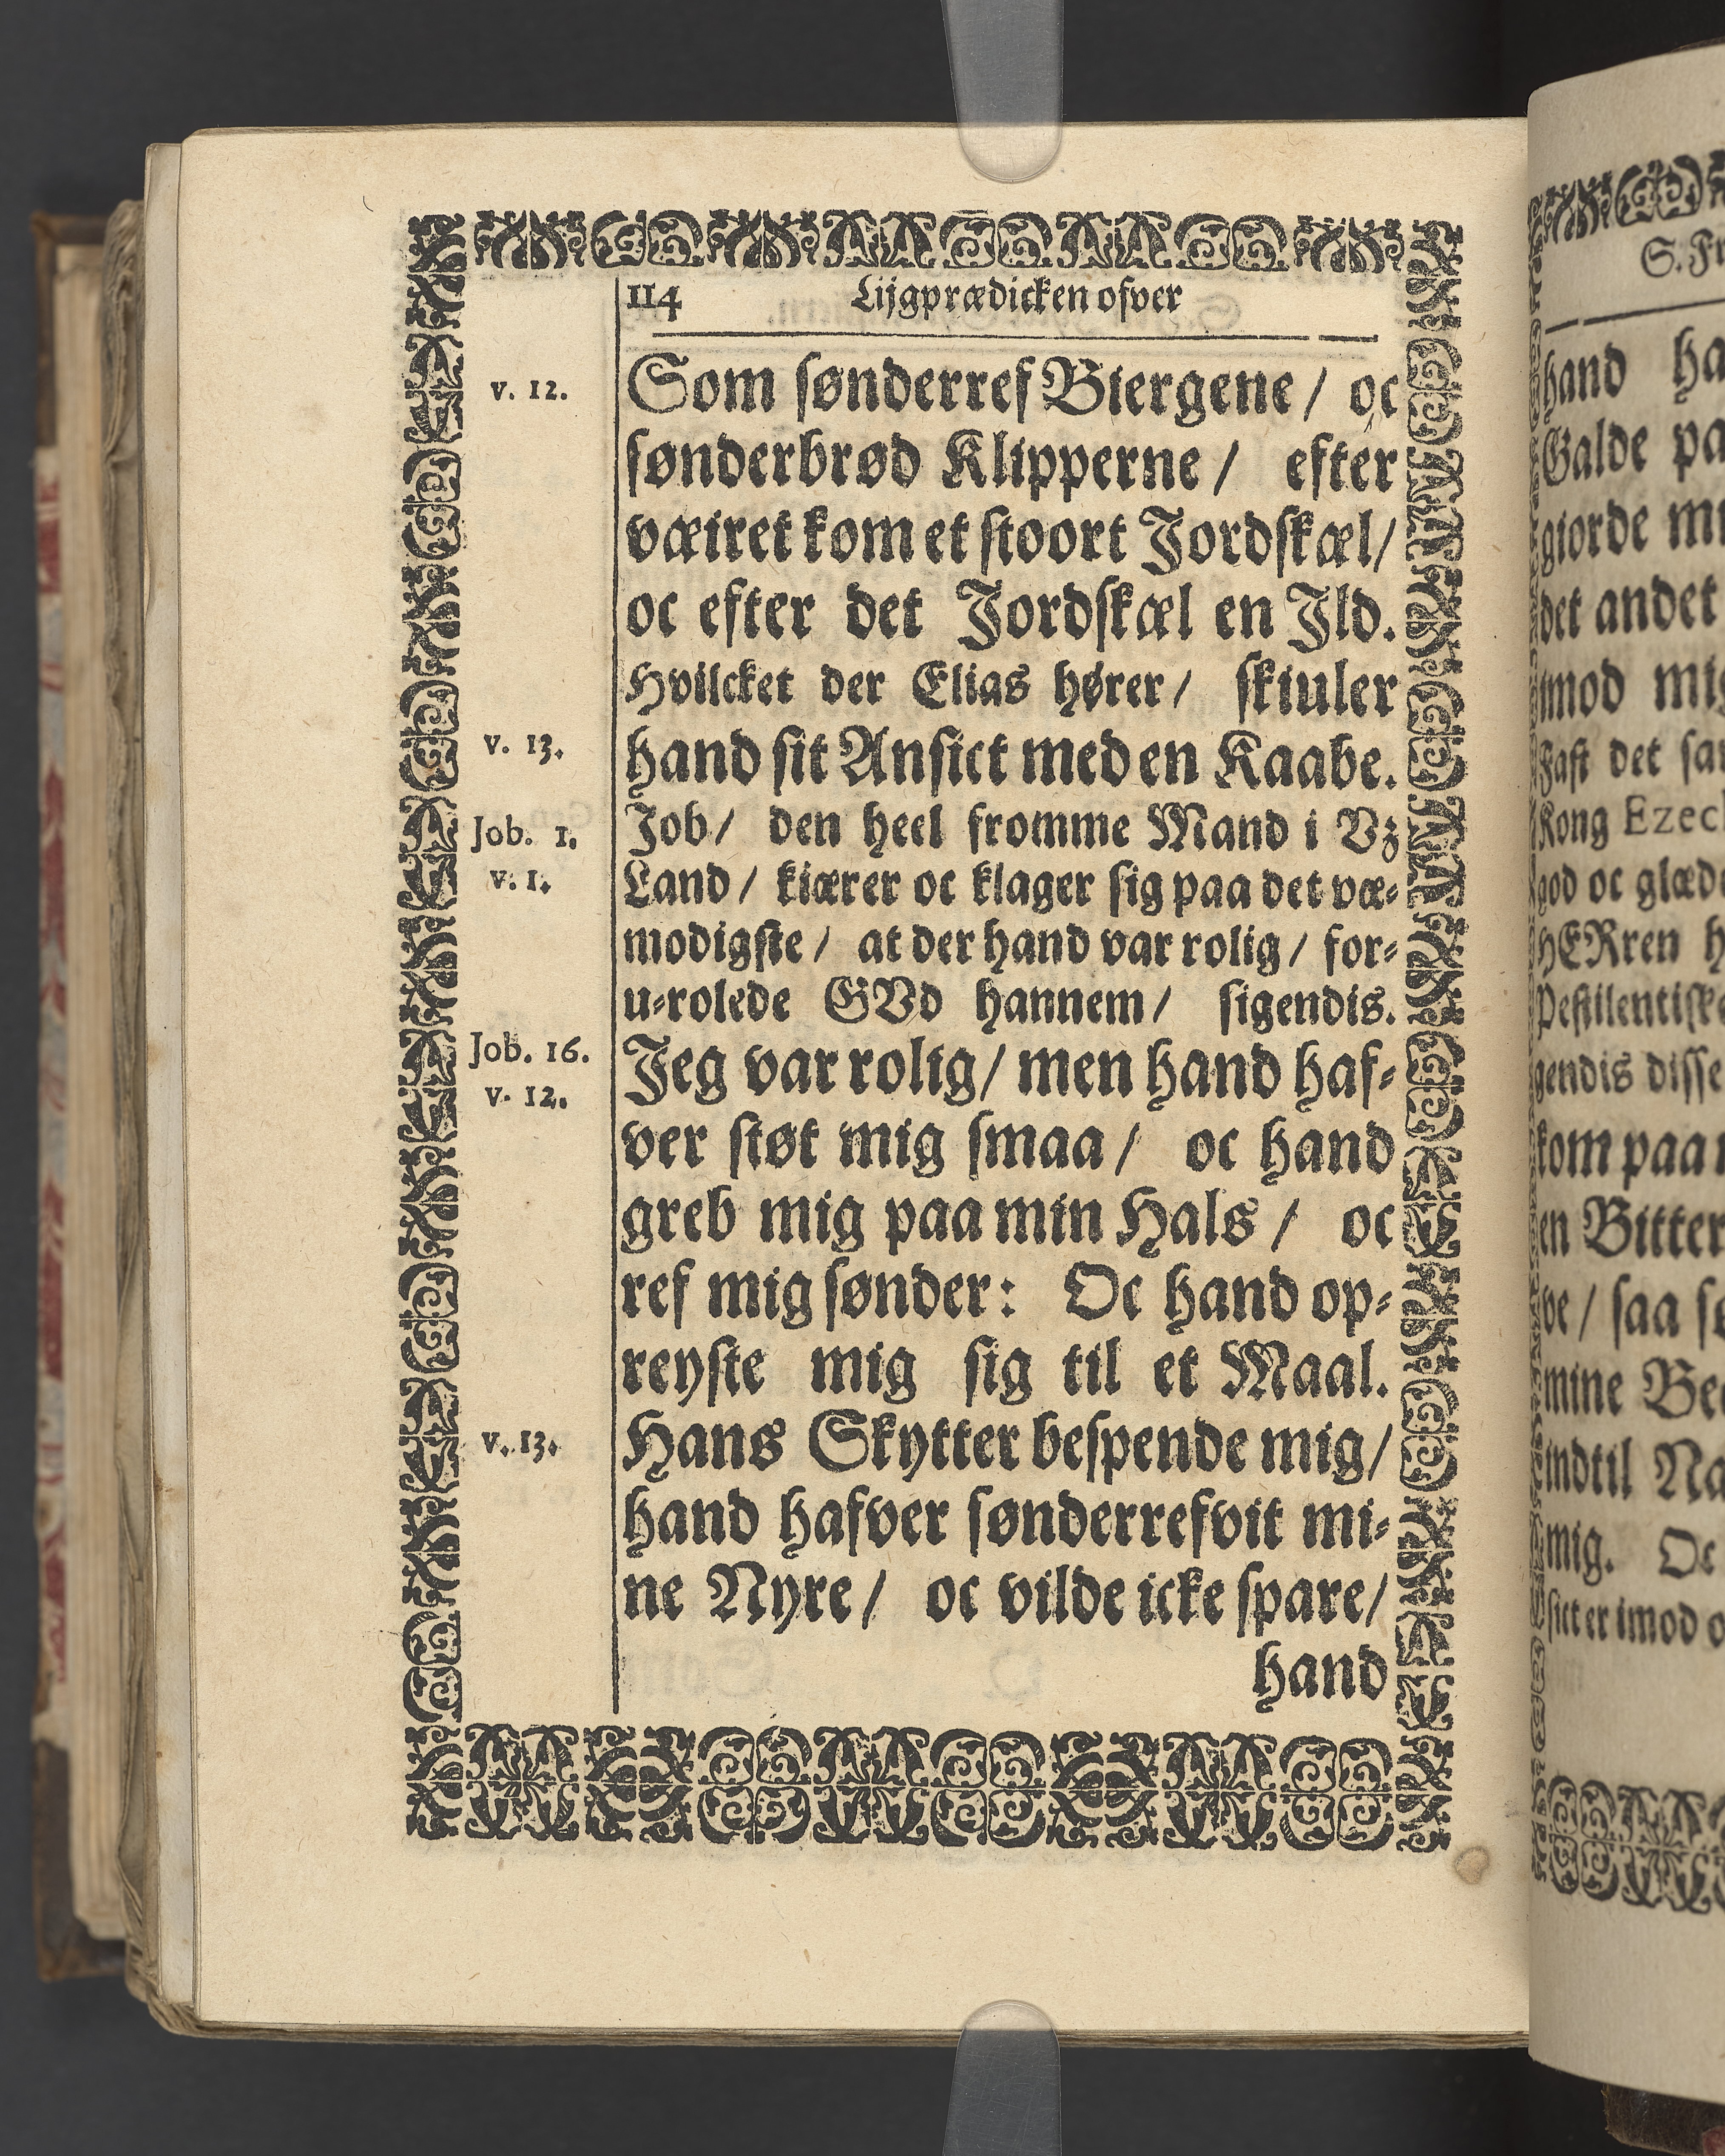 114 Lijgprædicken ofver
v. 12. Som sønderref Biergene / oc
sønderbrød Klipperne / efter
væiret kom et stoort Jordskæl /
oc efter det Jordskæl en Jld.
Hvilcket der Elias hører / skiuler
v. 13. hand sit Ansict med en Kaabe.
Job. 1. Job / den heel fromme Mand i Vz
v. 1. Land / kiærer oc klager sig paa det væ-
modigste / at der hand var rolig / for-
u-rolede GVd hannem / sigendis.
Job. 16. Jeg var rolig / men hand haf-
v. 12. ver støt mig smaa / oc hand
greb mig paa min Hals / oc
ref mig sønder: Oc hand op-
reyste mig sig til et Maal.
v. 13. Hans Skytter bespende mig /
hand hafver sønderrefvit mi-
ne Nyre / oc vilde icke spare /
hand
S. Fr
hand ha
Galde pa
giorde mi
det andet
imod mig
Fast det sa
Kong Ezech
god oc glæd
HERren h
Pestilentiske
gendis disse
kom paa
en Bitter
ve / saa s
mine Be
indtil Na
mig. Oc
sict er imod o